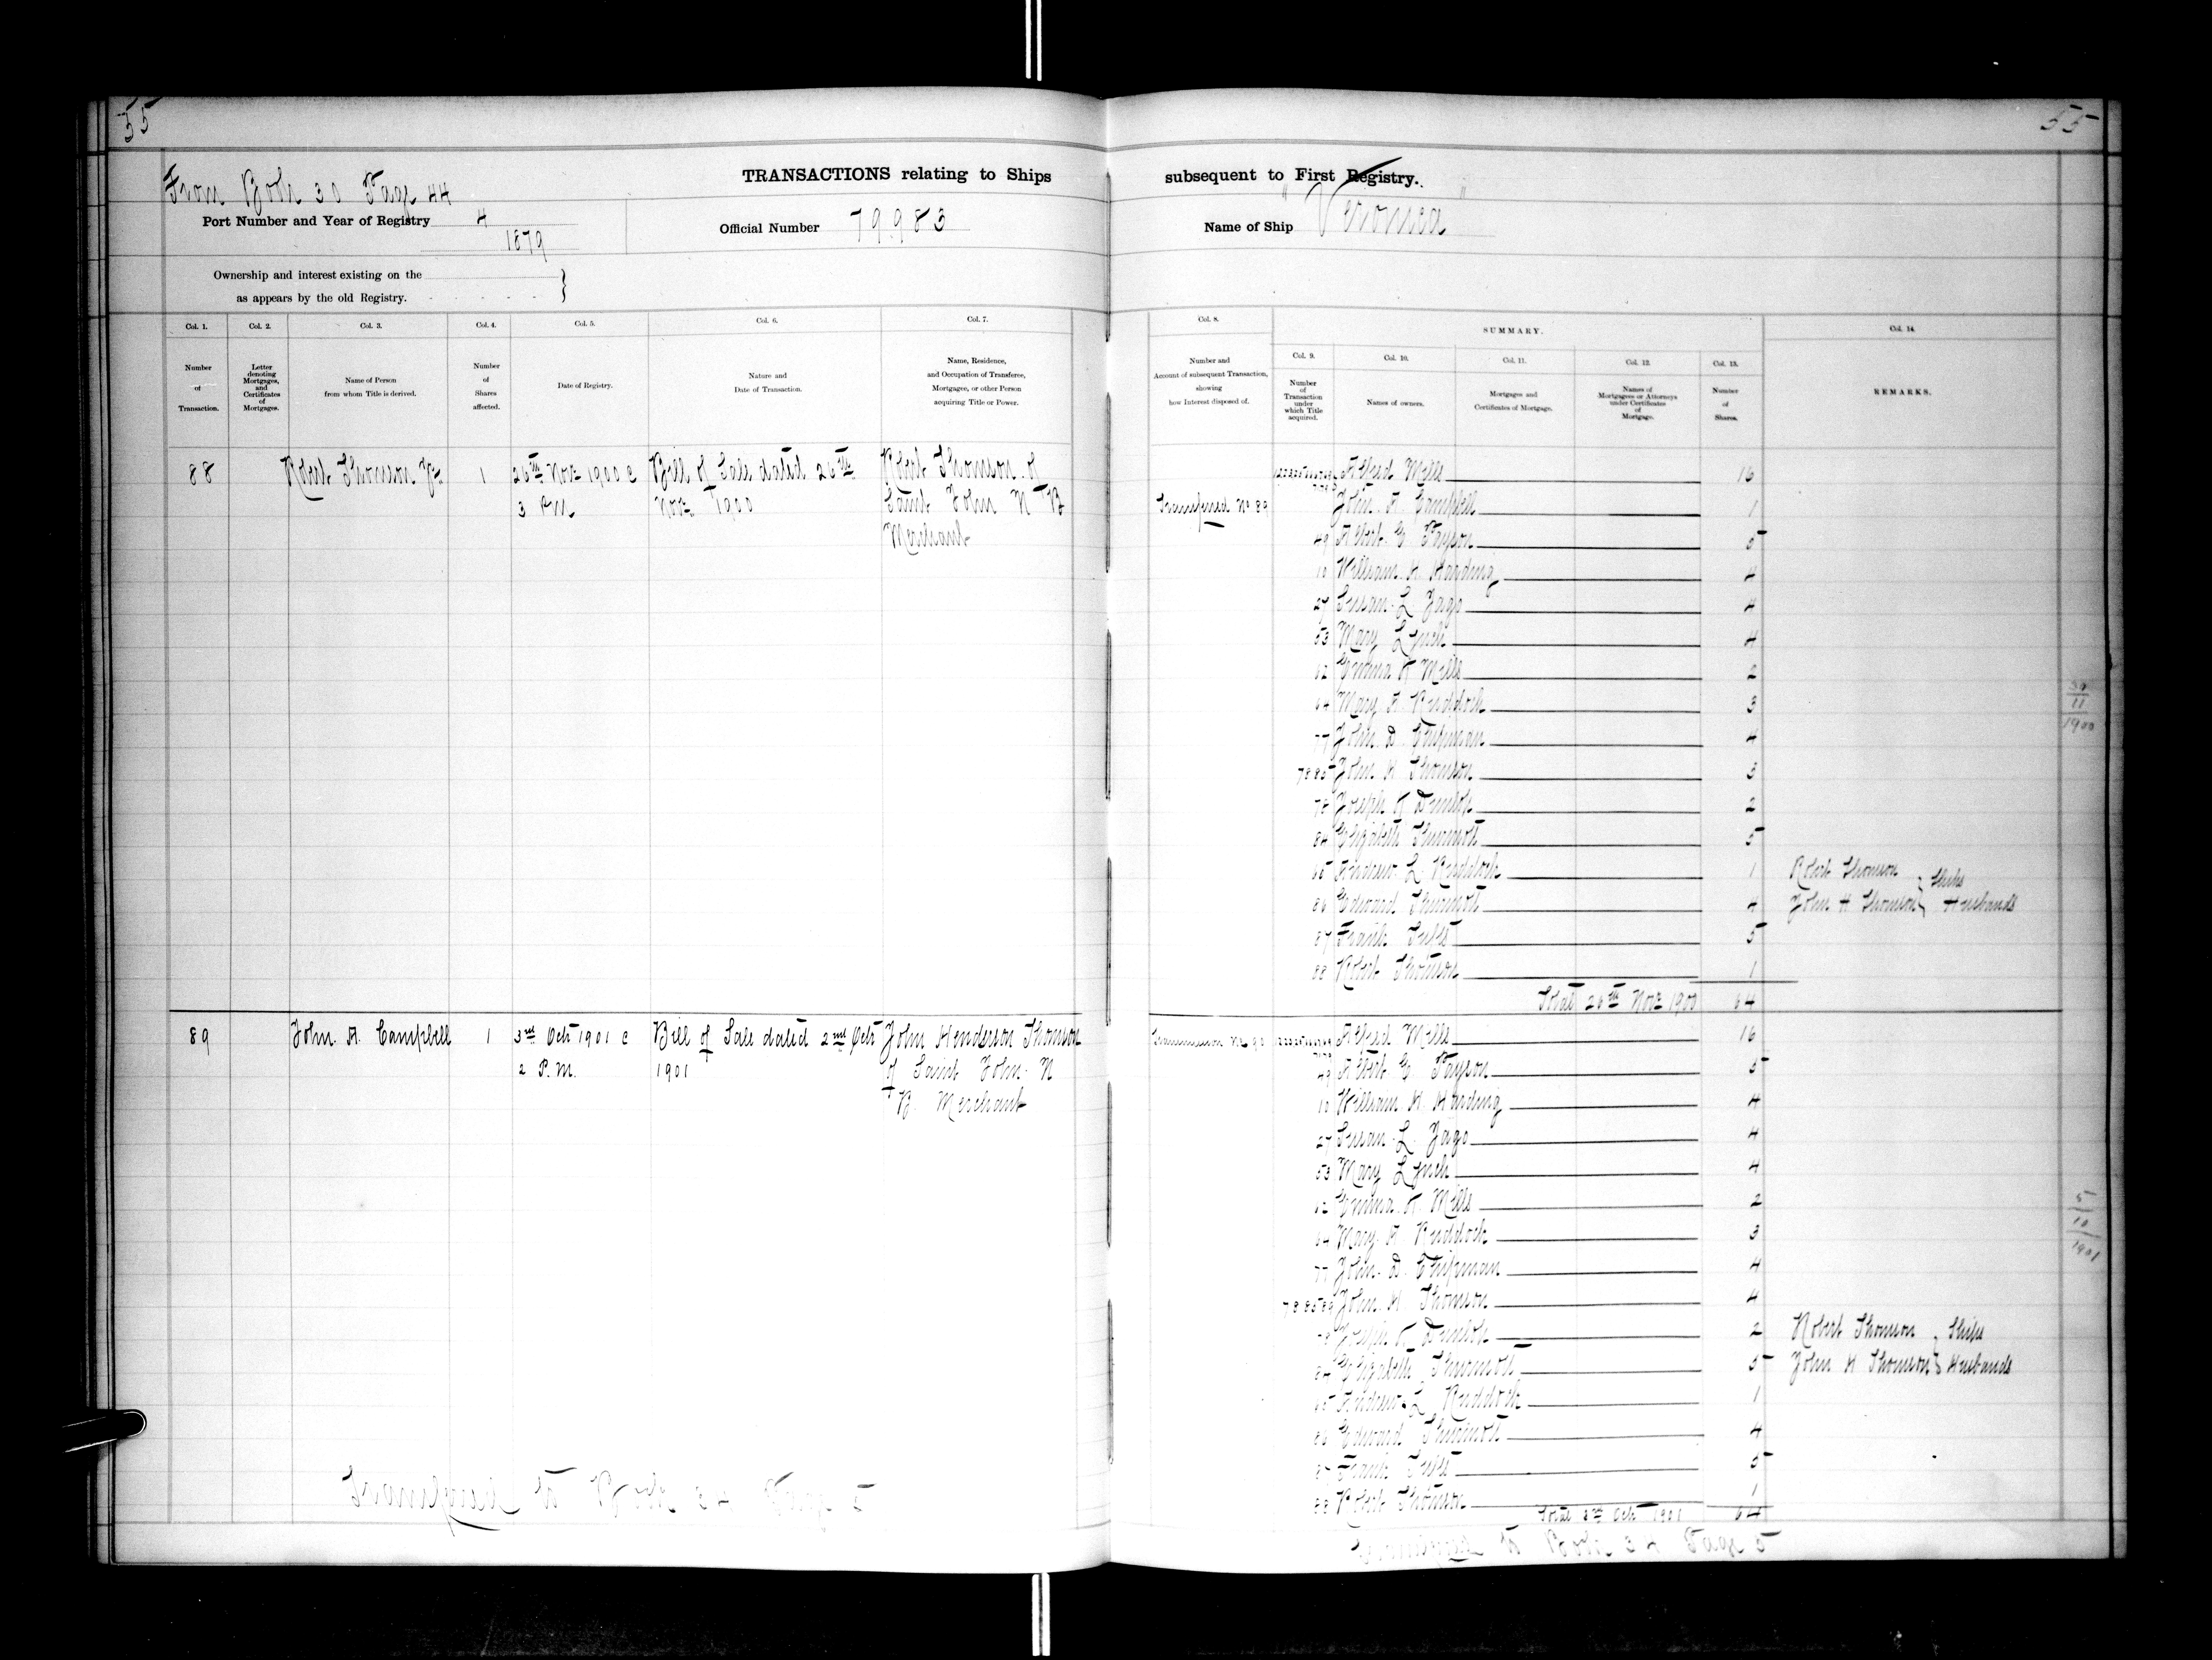 55
55
From Book 30 Page 44
TRANSACTIONS relating to Ships subsequent to First Registry.
Port Number and Year of Registry 4
1879
Official Number 79.983
Name of Ship "Veronica"
Ownership and interest existing on the
as appears by the old Registry.
Col. 1.
Number
of
Transaction.
Col. 2.
Letter
denoting
Mortgages,
and
Certificates
of
Mortgages.
Col. 3.
Name of Person
from whom Title is derived.
Col. 4.
Number
of
Shares
affected.
Col. 5.
Date of Registry.
Col. 6.
Nature and
Date of Transaction.
Col. 7.
Name, Residence,
and Occupation of Transferee,
Mortgagee, or other Person
acquiring Title or Power.
Col. 8.
Number and
Account of subsequent Transaction,
showing
how Interest disposed of.
SUMMARY.
Col. 9.
Number
of
Transaction
under
which Title
acquired.
Col. 10.
Names of owners.
Col. 11.
Mortgages and
Certificates of Mortgage.
Col. 12.
Names of
Mortgagees or Attorneys
under Certificates
of
Mortgage.
Col. 13.
Number
of
Shares.
Col. 14.
REMARKS.
88 Robert Thomson Jr 1 26th Nov 1900 @ Bill of Sale dated 26th Robert Thomson of
3 PM Nov 1900 Saint John N B
Merchant
Alfred Mills 16
Transferred No 89 John A. Campbell 1
49 Albert C. Payson 5
10 William H. Harding 4
27 Susan L. Jago 4
53 Mary Lynch 4
62 Emma A Mills 2
64 Mary A. Ruddock 3
77 John D. Chipman 4
78 85 John H Thomson 3
78 Joseph A Dunlop 2
84 Elizabeth Thurmott 5
65 Andrew L. Ruddock 1
86 Edward Thurmott 4
87 Frank Tufts 5
88 Robert Thomson 1
Total 26th Nov 1900 64
Robert Thomson } Ships
John H Thomson } Husbands
30
11
1900
89 John A. Campbell 1 3rd Oct 1901 @ Bill of Sale dated 2nd Oct John Henderson Thomson
2 P.M. 1901 of Saint John N
B. Merchant
Alfred Mills 16
49 Albert C. Payson 5
10 William H. Harding 4
27 Susan L. Jago 4
53 Mary Lynch 4
62 Emma A. Mills 2
64 Mary A Ruddock 3
77 John D. Chipman 4
78 85 89 John H. Thomson 4
78 Joseph A Dunlop 2
84 Elizabeth Thurmott 5
65 Andrew L Ruddock 1
86 Edward Thurmott 4
87 Frank Tufts 5
88 Robert Thomson 1
Total 3rd Oct 1901 64
Robert Thomson } Ships
John H Thomson } Husbands
5
10
1901
to Book 34 Page 5